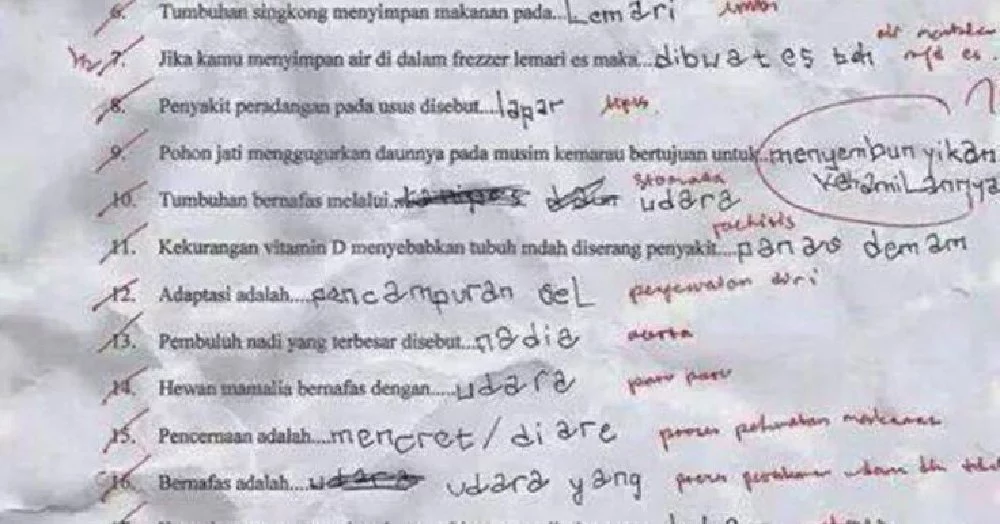 6. Tumbuhan singkong menyimpan makanan pada...Lemari umbi
1/2 7. Jika kamu menyimpan air di dalam frezzer lemari es maka...dibuat es air mjd es.
8. Penyakit peradangan pada usus disebut....lapar
9. Pohon jati menggugurkan daunnya pada musim kemarau bertujuan untuk...menyembunyikan
kehamilannya
stomata
10. Tumbuhan bernafas melalui... udara
rachitis
11. Kekurangan vitamin D menyebabkan tubuh mdah diserang penyakit...panans demam
12. Adaptasi adalah....pencampuran sel penyesuaian diri
13. Pembuluh nadi yang terbesar disebut...nadia aorta
14. Hewan mamalia bernafas dengan.....udara paru paru
15. Pencernaan adalah....mencret/diare proses makanan
16. Bernafas adalah....udara udara yang proses